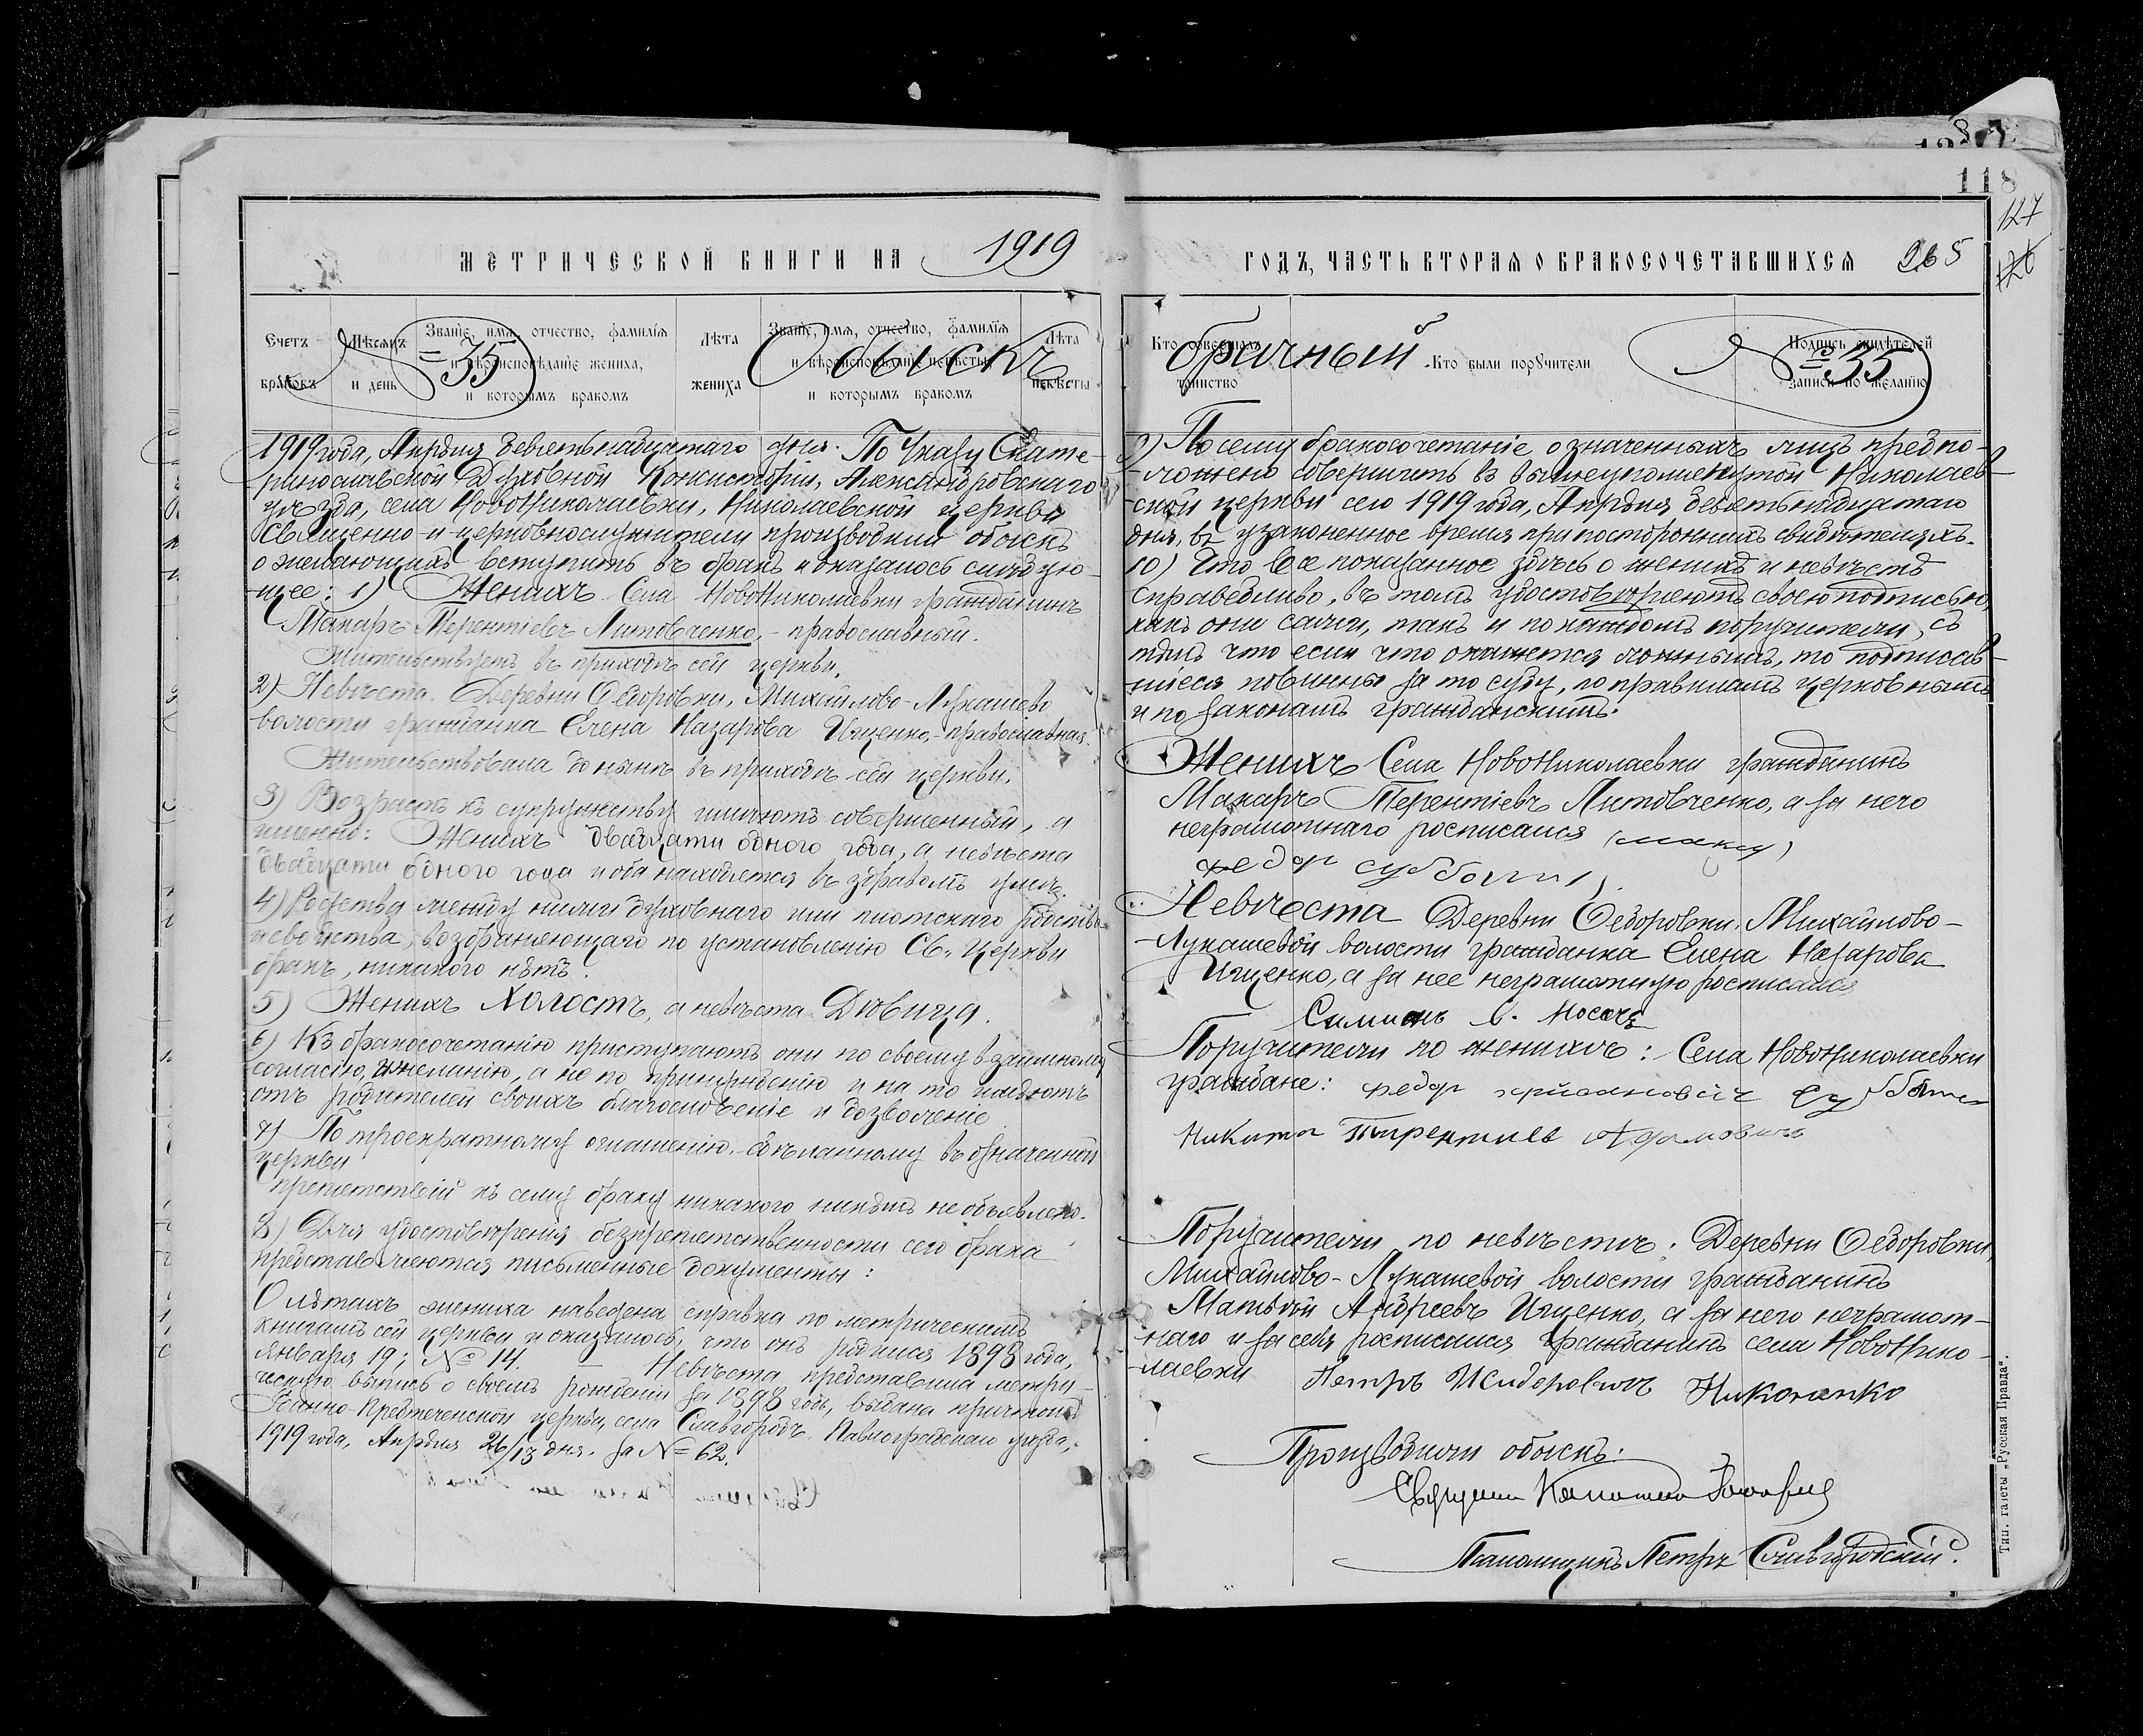 118
127
126
МЕТРИЧЕСКОЙ КНИГИ НА 1919
ГОДЪ, ЧАСТЬ ВТОРАЯ О БРАКОСОЧЕТАВШИХСЯ 265
Счетъ браковъ
Мѣсяцъ и день
Званіе, имя, отчество, фамилія и вѣроисповѣданіе жениха, и которымъ бракомъ
Лѣта жениха
Званіе, имя, отчество, фамилія и вѣроисповѣданіе невѣсты и которымъ бракомъ
Лѣта невѣсты
Кто совершалъ таинство
Кто были поручители
Подпись свидѣтелей записи по желанію
35 Обыскъ брачный 35
1919 года, Апрѣля девятьнадцатаго дня. По Указу Екате-
ринославской Духовной Консисторіи, Александровскаго
уѣзда, села Новониколаевки, Николаевской церкви
Священно-и-церковнослужители производили обыскъ
о желающихъ вступить въ бракъ и оказалось слѣдую-
щее: 1) Женихъ Села Новониколаевки гражданинъ
Макаръ Терентіевъ Литовченко, - православный.
Жительствуетъ въ приходѣ сей церкви.
2) Невѣста. Деревни Ѳедоровки, Михайлово-Лукашево
волости гражданка Елена Назарова Ищенко, - православная.
Жительствовала донынѣ въ приходѣ сей церкви.
3) Возрастъ къ супружеству имѣютъ совершенный, а
именно: Женихъ двадцати одного года, а невѣста
двадцати одного года и оба находятся въ здравомъ умѣ.
4) Родства между ними духовнаго или плотскаго родства
и свойства, возбраняющаго по установленію Св. Церкви
бракъ, никакого нѣтъ.
5) Женихъ Холостъ, а невѣста Дѣвица.
6) Къ бракосочетанію приступаютъ они по своему взаимному
согласію, и желанію, а не по принужденію и на то имѣютъ
отъ родителей своихъ благословеніе и дозволеніе
7) По троекратному оглашенію, сдѣланному въ означенной
церкви
препятствій къ сему браку никакого никѣмъ не объявлено.
8) Для удостовѣренія безпрепятственности сего брака
представляются письменные документы:
О лѣтахъ жениха наведена справка по метрическимъ
книгамъ сей церкви и оказалось, что онъ родился 1898 года,
января 19; № 14. — Невѣста представила метри-
ческую выпись о своемъ рожденіи за 1898 годъ, выдана причтомъ
Іоанно-Предтеченской церкви, села Славгородъ, Павлоградскаго уѣзда,
1919 года, Апрѣля 26/13 дня. за № 62.
9) По сему бракосочетаніе означенныхъ лицъ предпо-
ложено совершить въ вышеупомянутой Николаев-
ской церкви сего 1919 года, Апрѣля девятьнадцатаго
дня, въ узаконенное время при постороннихъ свидѣтеляхъ.
10) Что все показанное здѣсь о женихѣ и невѣстѣ
справедливо, въ томъ удостовѣряютъ своею подписью,
какъ они сами, такъ и по каждомъ поручители, съ
тѣмъ что если что окажется ложнымъ, то подписав-
шіеся повинны за то суду, по правиламъ церковнымъ
и по законамъ гражданскимъ.
Женихъ Села Новониколаевки гражданинъ
Макаръ Терентіевъ Литовченко, а за него
неграмотнаго росписался
федор субботы
Невѣста Деревни Ѳедоровки, Михайлово-
-Лукашевой волости гражданка Елена Назарова
Ищенко, а за нее неграмотную росписался
Поручители по женихѣ: Села Новониколаевки
граждане: федор
Никита Тирентиев Адамовичъ
Поручители по невѣстѣ: Деревни Ѳедоровки,
Михайлово-Лукашевой волости гражданинъ
Матвѣй Андреевъ Ищенко, а за него неграмот-
наго и за себя росписался гражданинъ села Новонико-
лаевки Петръ Исидоровичъ
Производили обыскъ:
Псаломщикъ Петръ Славгородскій.
Тип. газеты „Русская Правда“.